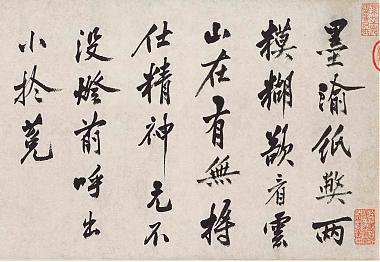 墨渝紙弊兩
模糊歘看雲
山在有無將
仕精神元不
沒燈前呼出
小於菟